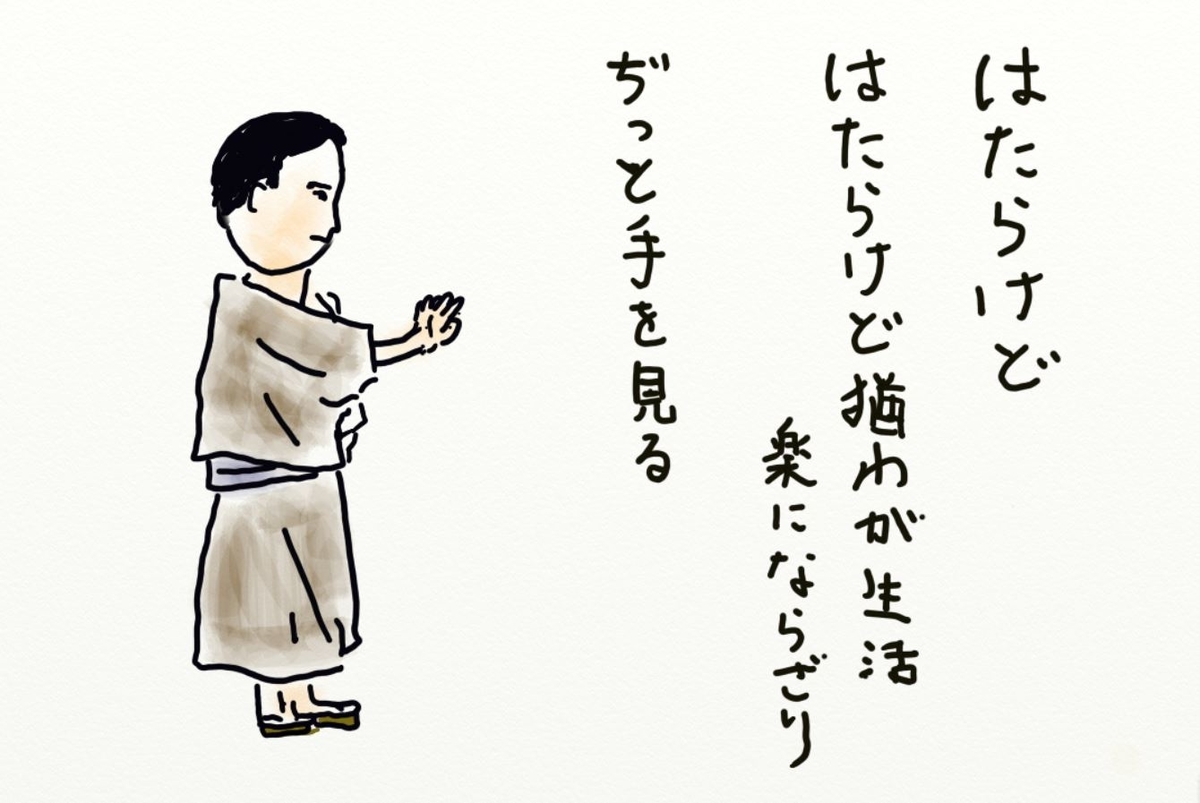 はたらけど
はたらけど猶わが生活
楽にならざり
ぢっと手を見る